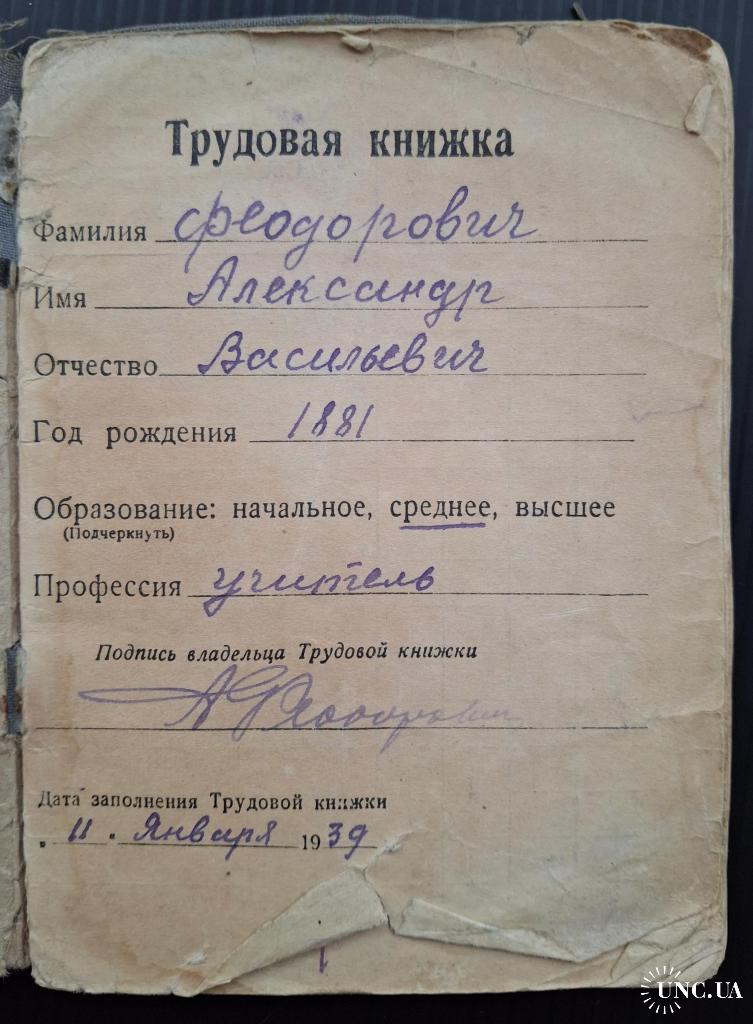 Трудовая книжка
Фамилия Феодорович
Имя Александр
Отчество Васильевич
Год рождения 1881
Образование: начальное, среднее, высшее
(Подчеркнуть)
Профессия учитель
Подпись владельца Трудовой книжки
АФеодорович
Дата заполнения Трудовой книжки
"11" Января 1939
1
UNC.UA